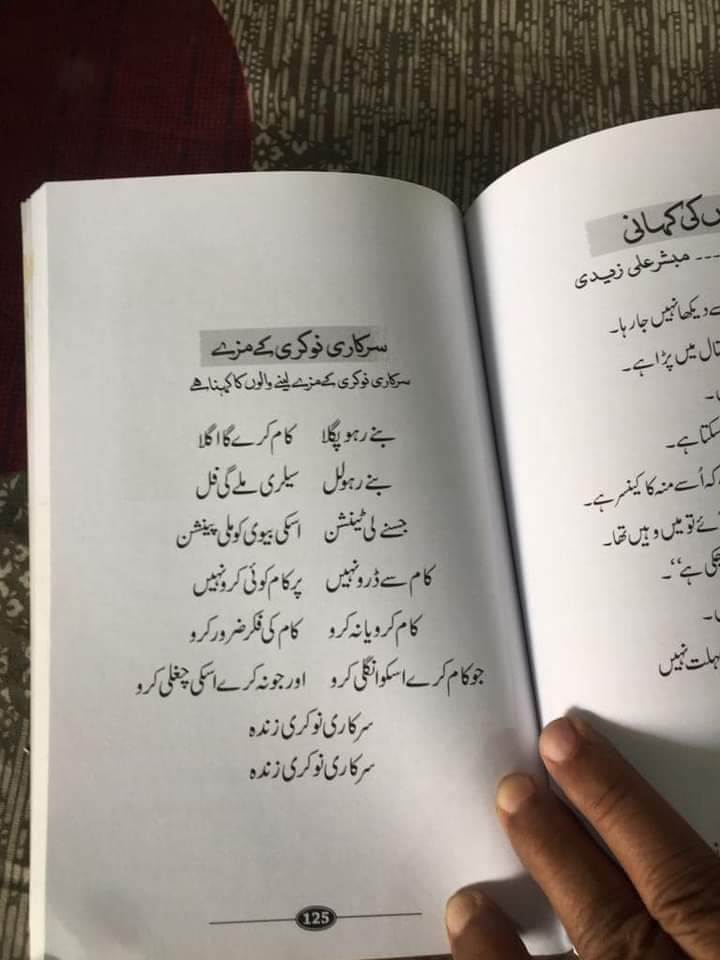 سرکاری نوکری کے مزے
سرکاری نوکری کے مزے لینے والوں کا کہنا ہے
بنے رہو پگلا کام کرے گا اگلا
بنے رہو لل سیلری ملے گی فل
جسنے لی ٹینشن اسکی بیوی کو ملی پینشن
کام سے ڈرو نہیں پر کام کوئی کرو نہیں
کام کرو یا نہ کرو کام کی فکر ضرور کرو
جو کام کرے اسکو انگلی کرو اور جو نہ کرے اسکی چغلی کرو
سرکاری نوکری زندہ
سرکاری نوکری زندہ
125
کی کہانی
۔۔۔ مبشر علی زیدی
دیکھا نہیں جا رہا۔
میں پڑا ہے۔
سکتا ہے۔
کہ اُسے منہ کا کینسر ہے۔
تو میں وہیں تھا۔
چکی ہے“۔
مہلت نہیں